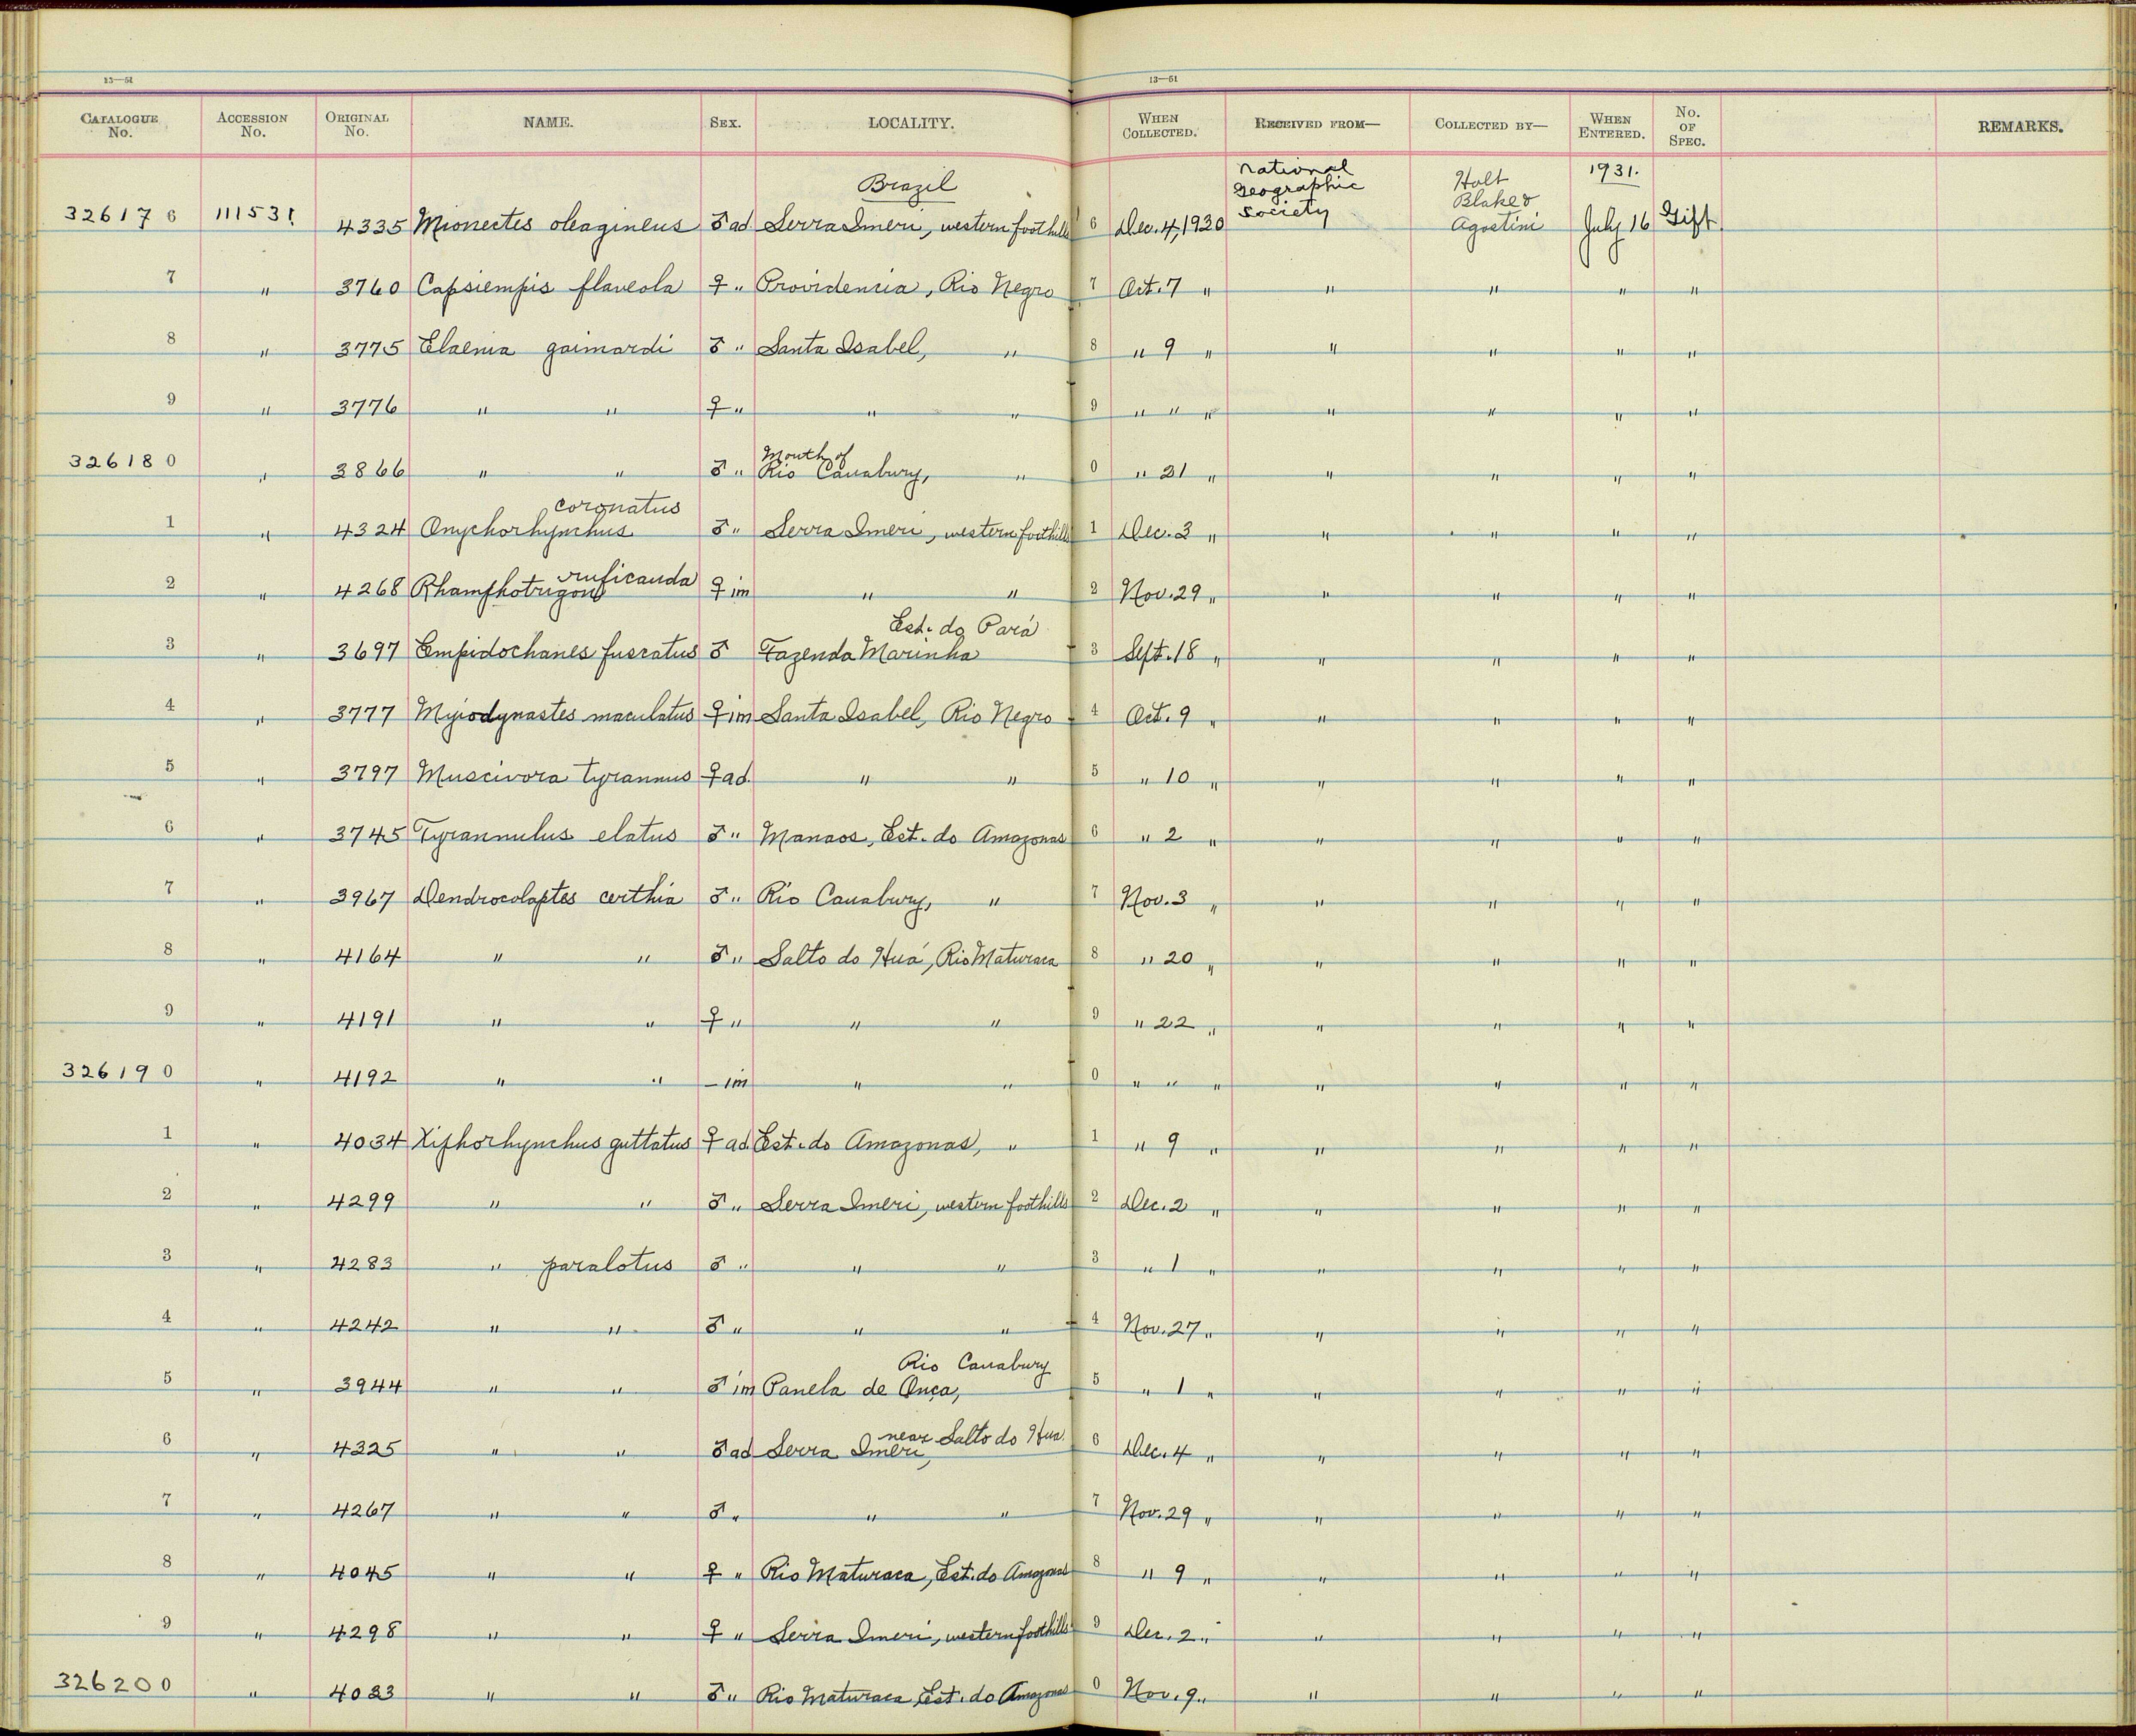 13—51 13—51
CATALOGUE No. ACCESSION No. ORIGINAL No. NAME. SEX. LOCALITY. WHEN COLLECTED. RECEIVED FROM— COLLECTED BY— WHEN ENTERED. No. OF SPEC. REMARKS.
Brazil National Geographic Society Holt Blake & Agostini 1931.
326176 111531 4335 Mionectes oleagineus ♂ ad Serra Imeri, western foothills 6 Dec. 4, 1930 July 16 Gift
7 " 3760 Capsiempis flaveola ♀ " Providencia, Rio Negro 7 Oct. 7 " " " " "
8 " 3775 Elaenia gaimardi ♂ " Santa Isabel, " 8 " 9 " " " " "
9 " 3776 " " ♀ " " " 9 " " " " " " "
Mouth of
326180 " 3866 " " ♂ " Rio Cauabury, " 0 " 21 " " " " "
coronatus
1 " 4324 Onychorhynchus ♂ " Serra Imeri, western foothills 1 Dec. 3 " " " " "
ruficauda
2 " 4268 Rhamphotrigon ♀ im " " 2 Nov. 29 " " " " "
Est. do Pará
3 " 3697 Empidochanes fuscatus ♂ Fazenda Marinha 3 Sept. 18 " " " " "
4 " 3777 Myiodynastes maculatus ♀ im Santa Isabel, Rio Negro 4 Oct. 9 " " " " "
5 " 3797 Muscivora tyrannus ♀ ad. " " 5 " 10 " " " " "
6 " 3745 Tyrannulus elatus ♂ " Manaos, Est. do Amazonas 6 " 2 " " " " "
7 " 3967 Dendrocolaptes certhia ♂ " Rio Cauabury, " 7 Nov. 3 " " " " "
8 " 4164 " " ♂ " Salto do Huá, Rio Maturaca 8 " 20 " " " " "
9 " 4191 " " ♀ " " " 9 " 22 " " " " "
326190 " 4192 " " – im " " 0 " " " " " " "
1 " 4034 Xiphorhynchus guttatus ♀ ad. Est. do Amazonas, " 1 " 9 " " " " "
2 " 4299 " " ♂ " Serra Imeri, western foothills 2 Dec. 2 " " " " "
3 " 4283 " paralotus ♂ " " " 3 " 1 " " " " "
4 " 4242 " " ♂ " " " 4 Nov. 27 " " " " "
Rio Cauabury
5 " 3944 " " ♂ im Panela de Onça, 5 " 1 " " " " "
near Salto do Hua
6 " 4325 " " ♂ ad Serra Imeri, 6 Dec. 4 " " " " "
7 " 4267 " " ♂ " " " 7 Nov. 29 " " " " "
8 " 4045 " " ♀ " Rio Maturaca, Est. do Amazonas 8 " 9 " " " " "
9 " 4298 " " ♀ " Serra Imeri, western foothills 9 Dec. 2 " " " " "
326200 " 4033 " " ♂ " Rio Maturaca, Est. do Amazonas 0 Nov. 9 " " " " "